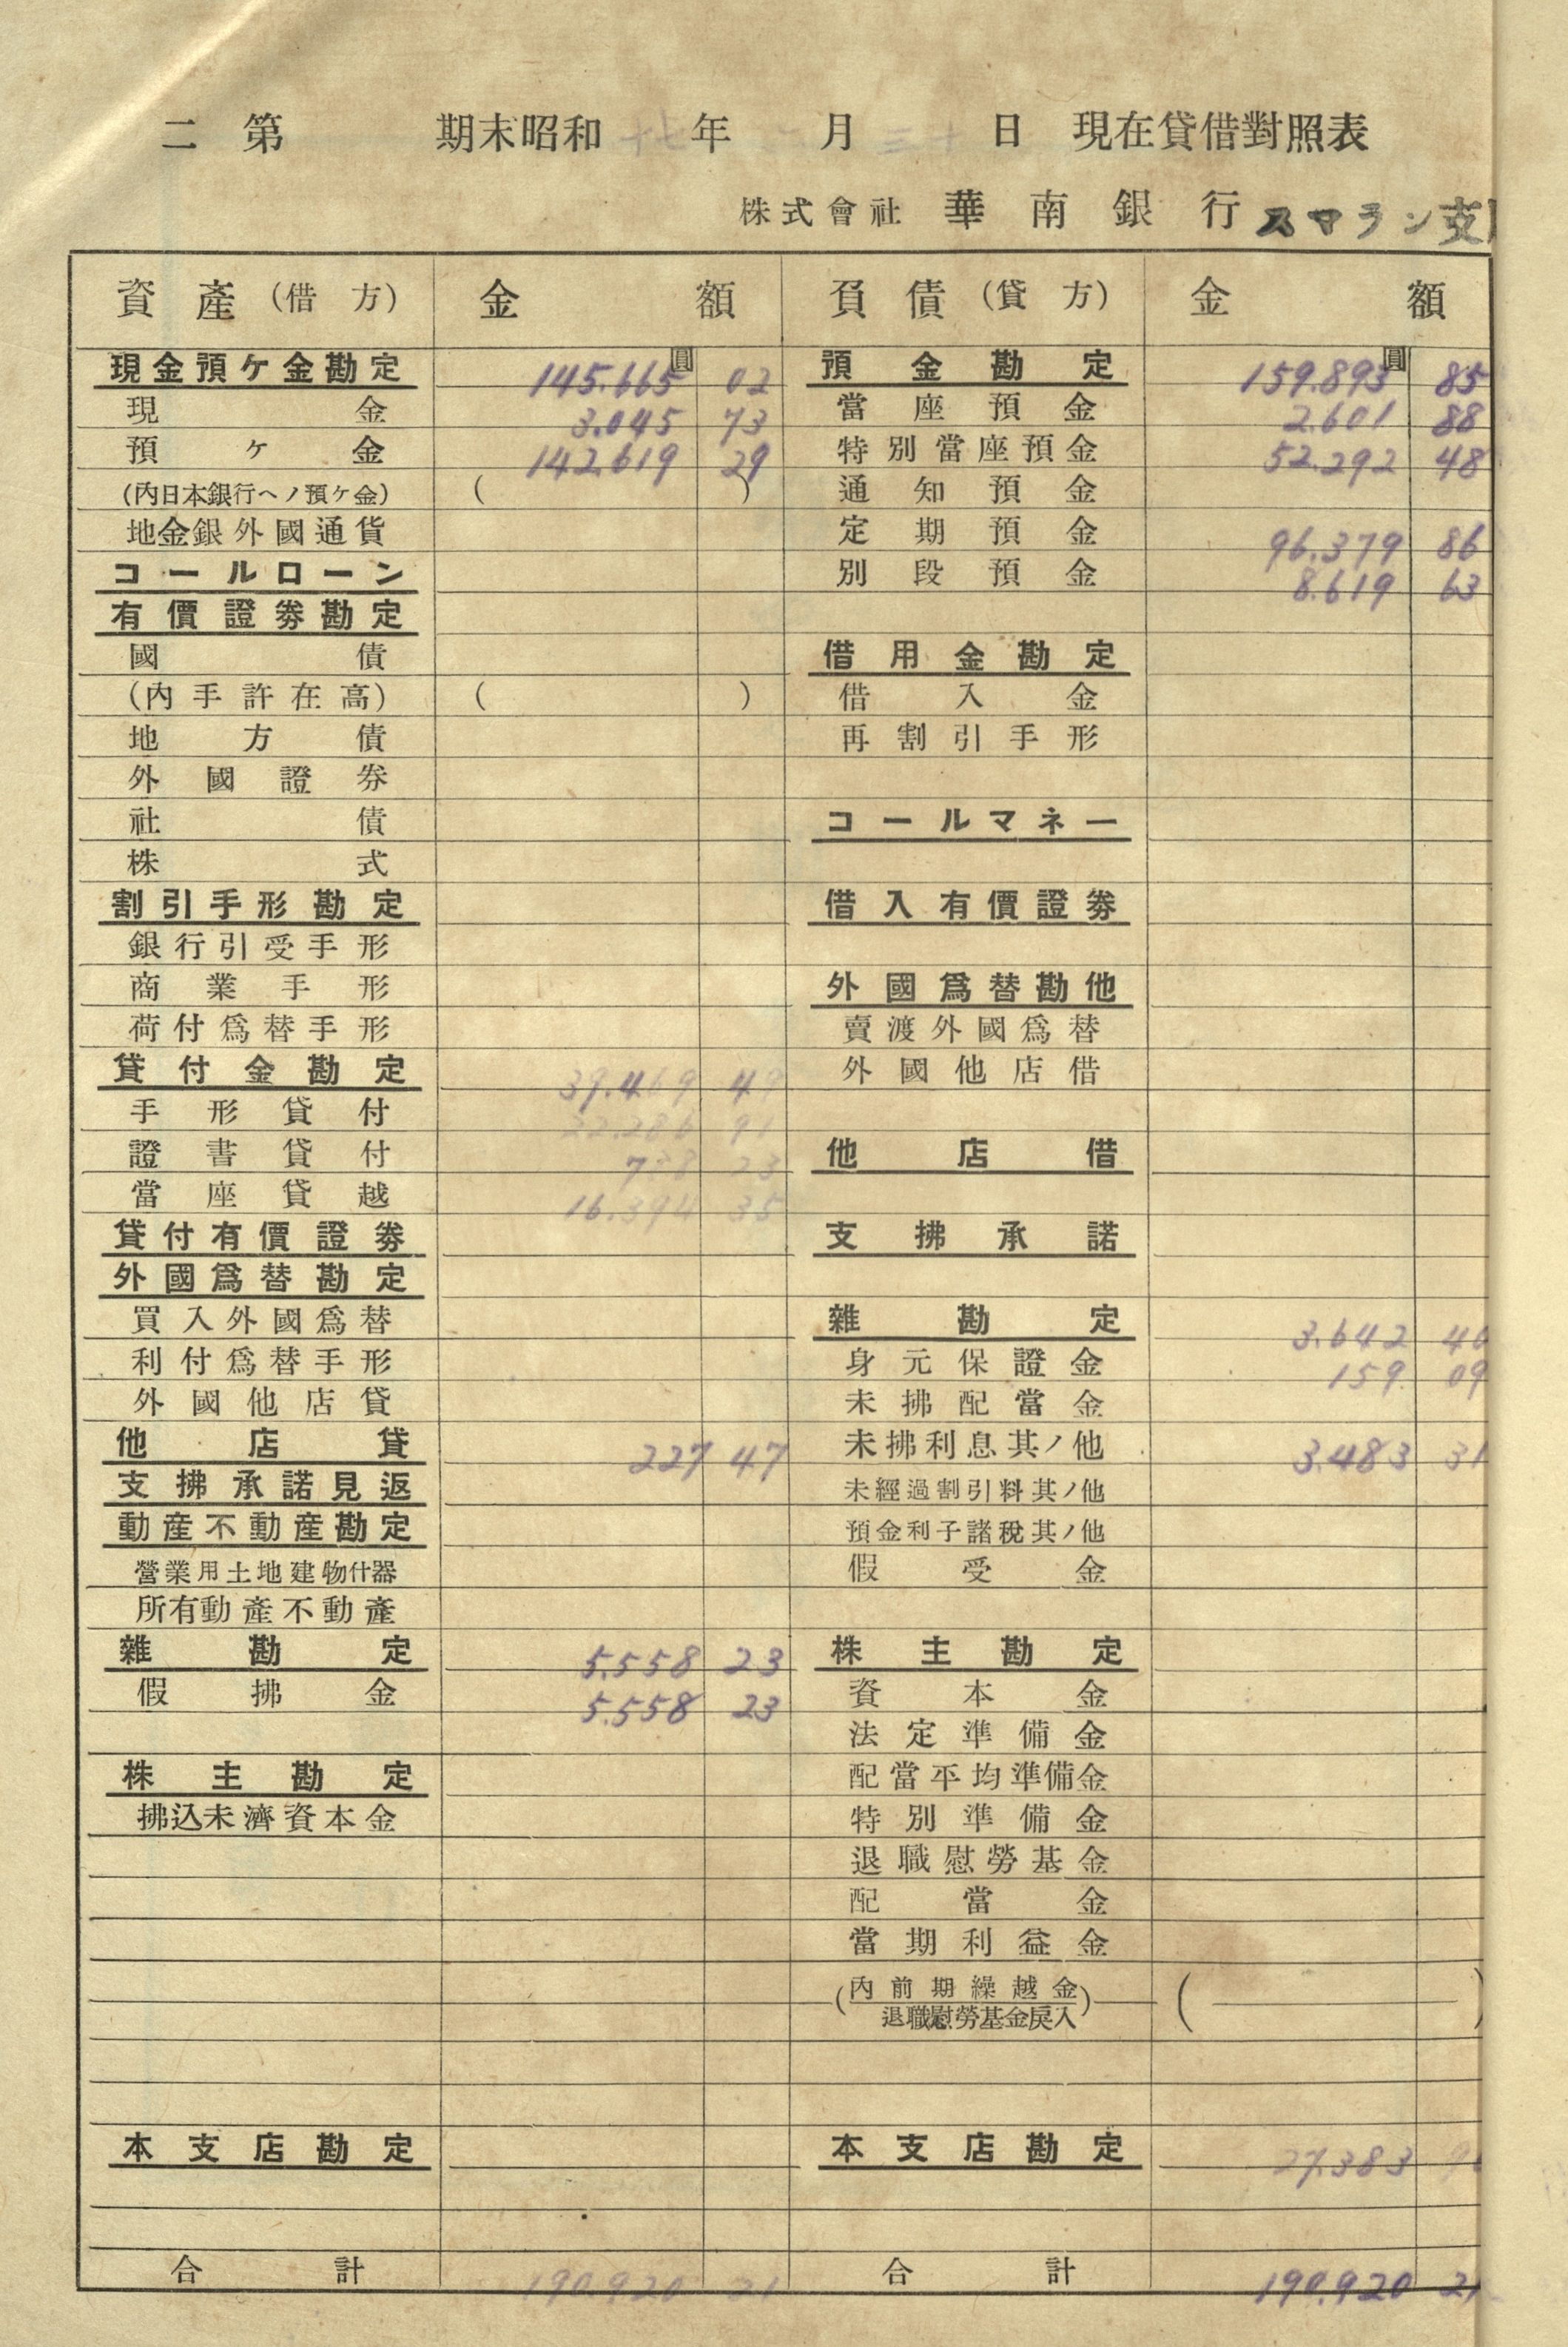 二 第 期末昭和十七年 月三十日 現在貸借對照表
株式會社 華南銀行 スマラン支
資產(借方) 金額 負債(貸方) 金額
現金預ケ金勘定 圓 145.665 02 預金勘定 圓 159.893 85
現金 3.045 73 當座預金 2.601 88
預ケ金 142.619 29 特別當座預金 52.292 48
(內日本銀行ヘノ預ケ金) ( ) 通知預金
地金銀外國通貨 定期預金 96.379 86
コールローン 別段預金 8.619 63
有價證券勘定
國債 借用金勘定
(內手許在高) ( ) 借入金
地方債 再割引手形
外國證券
社債 コールマネー
株式
割引手形勘定 借入有價證券
銀行引受手形
商業手形 外國爲替勘他
荷付爲替手形 賣渡外國爲替
貸付金勘定 39.469 49 外國他店借
手形貸付 22.286 91
證書貸付 788 23 他店借
當座貸越 16.394 35
貸付有價證券 支拂承諾
外國爲替勘定
買入外國爲替 雜勘定 3.642 40
利付爲替手形 身元保證金 159 09
外國他店貸 未拂配當金
他店貸 227 47 未拂利息其ノ他 3.483 31
支拂承諾見返 未經過割引料其ノ他
動產不動產勘定 預金利子諸稅其ノ他
營業用土地建物什器 假受金
所有動產不動產
雜勘定 5.558 23 株主勘定
假拂金 5.558 23 資本金
法定準備金
株主勘定 配當平均準備金
拂込未濟資本金 特別準備金
退職慰勞基金
配當金
當期利益金
(內前期繰越金 退職慰勞基金戾入) ( )
本支店勘定 本支店勘定 27.383
合計 190.920 21 合計 190.920 21